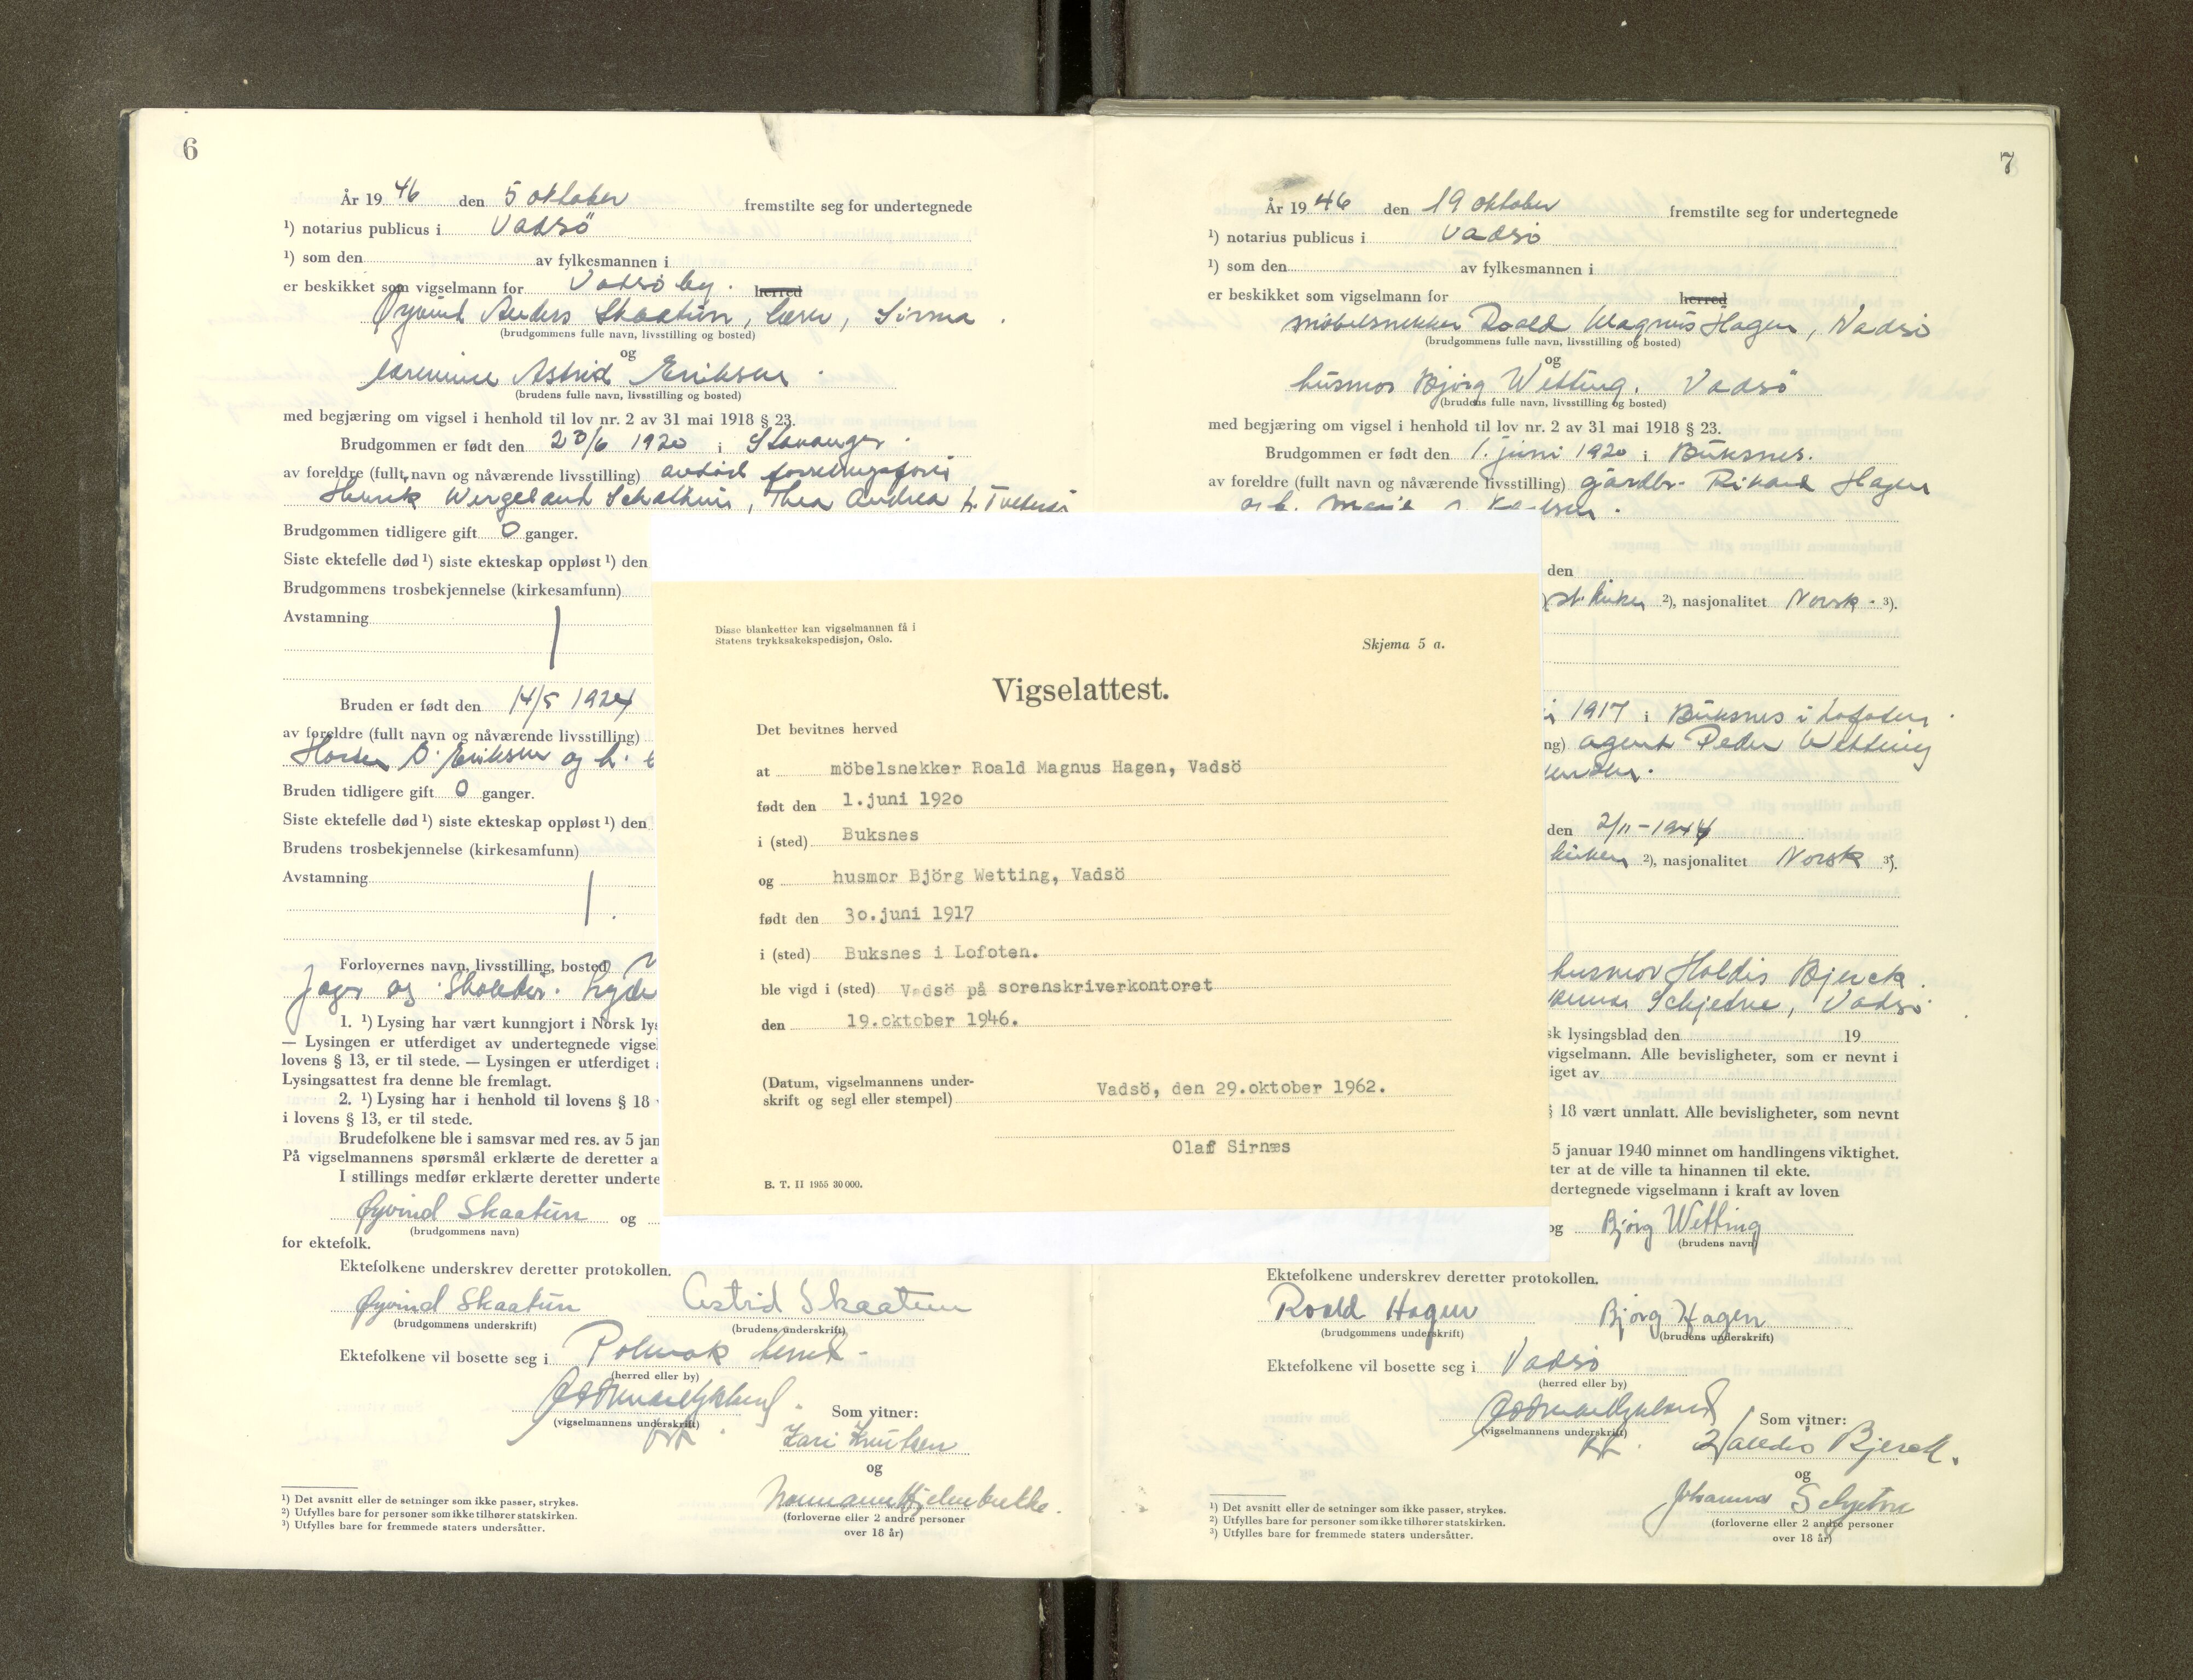 6
År 1946 den 5 oktober fremstilte seg for undertegnede
¹) notarius publicus i Vadsö
¹) som den av fylkesmannen i
er beskikket som vigselmann for Vadsö by. herred
Øyvind Anders Skaatun, lærer, Sirma.
(brudgommens fulle navn, livsstilling og bosted)
og
lærerinne Astrid Eriksen.
(brudens fulle navn, livsstilling og bosted)
med begjæring om vigsel i henhold til lov nr. 2 av 31 mai 1918 § 23.
Brudgommen er født den 23/6 1920 i Stavanger.
av foreldre (fullt navn og nåværende livsstilling) avdöd
Henrik Wergeland , Thea Andrea f.
Brudgommen tidligere gift 0 ganger.
Siste ektefelle død ¹) siste ekteskap oppløst ¹) den
Brudgommens trosbekjennelse (kirkesamfunn)
Avstamning
Bruden er født den 14/5 1924
av foreldre (fullt navn og nåværende livsstilling)
Eriksen og h.
Bruden tidligere gift 0 ganger.
Siste ektefelle død ¹) siste ekteskap oppløst ¹) den
Brudens trosbekjennelse (kirkesamfunn)
Avstamning
Forlovernes navn, livsstilling, bosted
og
1. ¹) Lysing har vært kunngjort i Norsk lys
— Lysingen er utferdiget av undertegnede vigse
lovens § 13, er til stede. — Lysingen er utferdiget
Lysingsattest fra denne ble fremlagt.
2. ¹) Lysing har i henhold til lovens § 18
i lovens § 13, er til stede.
Brudefolkene ble i samsvar med res. av 5 jan
På vigselmannens spørsmål erklærte de deretter a
I stillings medfør erklærte deretter underte
Øyvind Skaatun og
(brudgommens navn)
for ektefolk.
Ektefolkene underskrev deretter protokollen.
Øyvind Skaatun Astrid Skaatun
(brudgommens underskrift) (brudens underskrift)
Ektefolkene vil bosette seg i Polmak herred
(herred eller by)
(vigselmannens underskrift)
Som vitner:
Kari Knutsen
og
(forloverne eller 2 andre personer
over 18 år)
¹) Det avsnitt eller de setninger som ikke passer, strykes.
²) Utfylles bare for personer som ikke tilhører statskirken.
³) Utfylles bare for fremmede staters undersåtter.
Disse blanketter kan vigselmannen få i
Statens trykksakekspedisjon, Oslo.
Skjema 5 a.
Vigselattest.
Det bevitnes herved
at möbelsnekker Roald Magnus Hagen, Vadsö
født den 1.juni 1920
i (sted) Buksnes
og husmor Björg Wetting, Vadsö
født den 30.juni 1917
i (sted) Buksnes i Lofoten.
ble vigd i (sted) Vadsö på sorenskriverkontoret
den 19.oktober 1946.
(Datum, vigselmannens under-
skrift og segl eller stempel)
Vadsö, den 29.oktober 1962.
Olaf Sirnæs
B. T. II 1955 30 000.
7
År 1946 den 19 oktober fremstilte seg for undertegnede
¹) notarius publicus i Vadsö
¹) som den av fylkesmannen i
er beskikket som vigselmann for herred
möbelsnekker Roald Magnus Hagen, Vadsö
(brudgommens fulle navn, livsstilling og bosted)
og
husmor Bjørg Wetting. Vadsö
(brudens fulle navn, livsstilling og bosted)
med begjæring om vigsel i henhold til lov nr. 2 av 31 mai 1918 § 23.
Brudgommen er født den 1. juni 1920 i Buksnes.
av foreldre (fullt navn og nåværende livsstilling) gårdbr. Rikard Hagen
og h.
den
st. kirken ²), nasjonalitet Norsk - ³).
1917 i Buksnes i Lofoten.
ng) agent Peder Wetting
den 2/11 - 1944
kirken ²), nasjonalitet Norsk ³).
husmor Haldis Bjerck.
Schjetne, Vadsö
sk lysingsblad den 19
vigselmann. Alle bevisligheter, som er nevnt i
iget av
§ 18 vært unnlatt. Alle bevisligheter, som nevnt
5 januar 1940 minnet om handlingens viktighet.
ter at de ville ta hinannen til ekte.
dertegnede vigselmann i kraft av loven
og Bjørg Wetting
(brudens navn)
Ektefolkene underskrev deretter protokollen.
Roald Hagen Bjørg Hagen
(brudgommens underskrift) (brudens underskrift)
Ektefolkene vil bosette seg i Vadsö
(herred eller by)
(vigselmannens underskrift)
Som vitner:
Bjerck.
og
Johanna Schjetne
(forloverne eller 2 andre personer
over 18 år)
¹) Det avsnitt eller de setninger som ikke passer, strykes.
²) Utfylles bare for personer som ikke tilhører statskirken.
³) Utfylles bare for fremmede staters undersåtter.